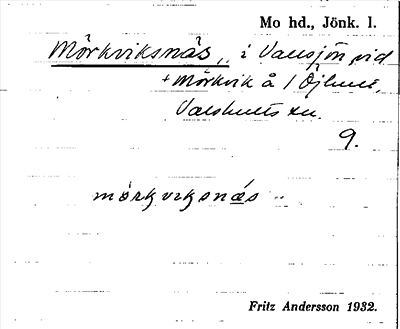 Mo hd., Jönk. l.
Mörkviksnäs, i Vallsjön vid
+ Mörkvik å
Valshults
9.
mörkviksnäs
Fritz Andersson 1932.